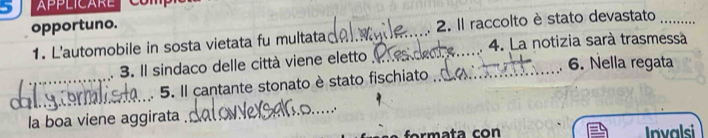 5 APPLICARE
opportuno.
1. L'automobile in sosta vietata fu multata dal vigile...... 2. Il raccolto è stato devastato ..........
.................. 3. Il sindaco delle città viene eletto presidente...... 4. La notizia sarà trasmessa
dal giornalista.... 5. Il cantante stonato è stato fischiato ..da tutti....... 6. Nella regata
la boa viene aggirata ..dal avversario......
formata con
Invalsi